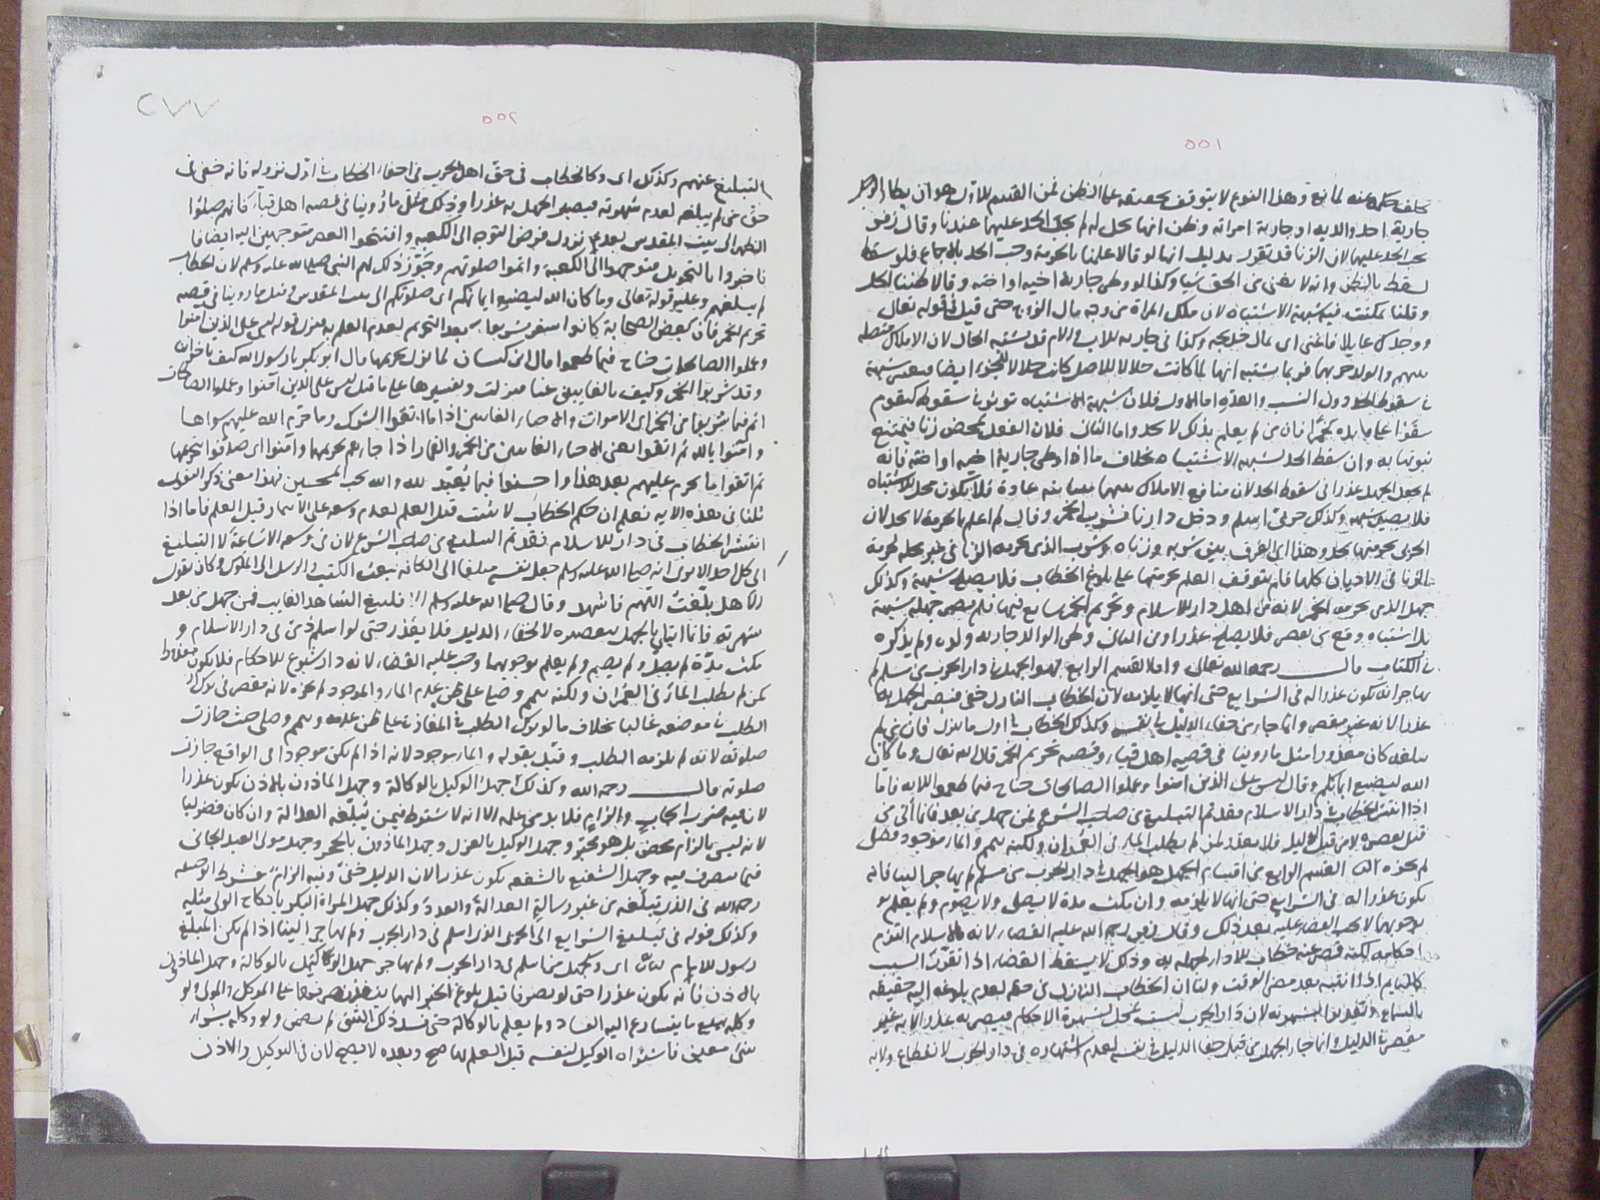 ٥٥١
تخلف حكمه عنه لمانع وهذا النوع لا يتوقف تحققه على الظن فمن القسم الاول هو ان يطأ
جارية احد والديه او جارية امراته وظن انها تحل له لم يجب الحد عليهما عندنا وقال زفر
يجب الحد عليهما لان الزنا قد تقرر بدليل انهما لو قالا علمنا بالحرمة وجب الحد بالاجماع فلو سقط
لسقط بالظن وانه لا يغني من الحق شيئا وكذا لو وطئ جارية اخيه او اخته وقال ظننتها تحل
وقلنا تمكنت فيه شبهة الاشتباه لان ملك المراة من وجه مال الزوج حتى قيل في قوله تعالى
ووجدك عايلا فاغنى اى بمال خديجة وكذا في جارية الاب والام قد يشتبه الحال لان الاملاك متصلة
في سقوط الحد دون النسب والعدة اما الاول فلان شبهة الاشتباه تؤثر في سقوط الحد كقوم
سقوا على مائدة خمرا فان من لم يعلم بذلك لا يحد واما الثاني فلان الفعل تمحض زنا فيمتنع
ثبوتهما به وان سقط الحد لشبهة الاشتباه بخلاف ما اذا وطئ جارية اخيه او اخته فانه
لم يجعل الجهل عذرا في سقوط الحد لان منافع الاملاك بينهما متباينة عادة فلا يكون محلا للاشتباه
فلا يصير شبهة وكذلك حربي اسلم ودخل دارنا فشرب الخمر وقال لم اعلم بالحرمة لا يحد لان
الزنا في الاديان كلها فلم يتوقف العلم بحرمتها على بلوغ الخطاب فلا يصلح شبهة وكذلك
جهل الذمي بحرمة الخمر لانه من اهل دار الاسلام وتحريم الخمر شايع فيها فلم يصر جهله شبهة
في الكتاب قال رحمه الله تعالى واما القسم الرابع فهو الجهل في دار الحرب من مسلم لم
يهاجر انه يكون عذرا له في الشرايع حتى انها لا يلزمه لان الخطاب النازل خفي فيصير الجهل به
عذرا لانه غير مقصر وانما جاء من خفاء الدليل في نفسه وكذلك الخطاب في اول ما ينزل فان من لم
يبلغه كان معذورا مثل ما روينا في قصة اهل قباء وقصة تحريم الخمر قال الله تعالى وما كان
الله ليضيع ايمانكم وقال ليس على الذين آمنوا وعملوا الصالحات جناح فيما طعموا الاية فاما
اذا انتشر الخطاب في دار الاسلام فقد تم التبليغ من صاحب الشرع فمن جهل من بعد فانما اتي من
قبل تقصيره لا من قبل الدليل فلا يعذر كمن لم يطلب الماء في العمران ولكنه تيمم والماء موجود فصلى
لم يجزه القسم الرابع من اقسام الجهل هو الجهل في دار الحرب من مسلم لم يهاجر الينا فانه
يكون عذرا له في الشرايع حتى انها لا يلزمه وان مكث مدة لا يصلي ولا يصوم ولم يعلم
بوجوبهما لا يجب القضاء عليه بعد ذلك وقال زفر رحمه الله عليه القضاء لانه بالاسلام التزم
احكامه لكنه قصر عنه خطاب الاداء لجهله به وذلك لا يسقط القضاء اذا تقرر السبب
كالنايم اذا انتبه بعد مضي الوقت ولنا ان الخطاب النازل خفي في حقه لعدم بلوغه اليه حقيقة
بالسماع وتقديرا بالشهرة لان دار الحرب ليست بمحل لشهرة الاحكام فيصير به عذرا لانه غير
مقصر في الدليل وانما جاء الجهل من قبل خفاء الدليل في نفسه لعدم اشتهاره في دار الحرب لانقطاع ولاية
٢٧٧
٥٥٢
التبليغ عنهم وكذلك اى وكالخطاب في حق اهل الحرب في خفاء الخطاب في اول نزوله فانه خفي في
حق من لم يبلغه لعدم شهرته فيصير الجهل به عذرا وذلك مثل ما روينا في قصة اهل قباء فانهم صلوا
الظهر الى بيت المقدس بعد نزول فرض التوجه الى الكعبة وافتتحوا العصر متوجهين اليه ايضا
فاخبروا بالتحويل فتوجهوا الى الكعبة واتموا صلوتهم وجوز ذلك لهم النبي صلى الله عليه وسلم لان الخطاب
لم يبلغهم وعليه قوله تعالى وما كان الله ليضيع ايمانكم اى صلوتكم الى بيت المقدس ومثل ما روينا في قصة
تحريم الخمر فان بعض الصحابة كانوا في سفر فشربوا بعد التحريم لعدم العلم به فنزل قوله ليس على الذين آمنوا
وعملوا الصالحات جناح فيما طعموا قال ابن كيسان لما نزل تحريمها قال ابو بكر يا رسول الله كيف باخواننا
وقد شربوا الخمر وكيف بالغائبين عنا فنزلت وتفسيرها على ما قيل ليس على الذين آمنوا وعملوا الصالحات
اثم فيما شربوا من الخمر اى الاموات والاحياء الغائبين اذا ما اتقوا الشرك وما حرم الله عليهم سواها
وآمنوا بالله ثم اتقوا يعني الاحياء الغائبين من الخمر والقمار اذا جاءهم تحريمها وآمنوا اى صدقوا بتحريمها
ثم اتقوا ما يحرم عليهم بعد هذا واحسنوا فيما تعبد لله والله يحب المحسنين فهذا معنى ذكر التقوى
ثلثا في هذه الاية فعلم ان حكم الخطاب لا يثبت قبل العلم لعدم وسعه على الايتمار قبل العلم فاما اذا
انتشر الخطاب في دار الاسلام فقد تم التبليغ من صاحب الشرع لان في وسعه الاشاعة لا التبليغ
الى كل احد الا ترى انه صلى الله عليه وسلم جعل نفسه مبلغا الى الكافة ببعث الكتب والرسل الى الملوك وكان يقول
الا هل بلغت اللهم فاشهد وقال صلى الله عليه وسلم الا فليبلغ الشاهد الغايب فمن جهل من بعد
شهرته فانما اتي بالجهل بتقصيره لا لخفاء الدليل فلا يعذر حتى لو اسلم ذمي في دار الاسلام و
مكث مدة لم يصل ولم يصم ولم يعلم بوجوبهما وجب عليه القضاء لانه دار شيوع الاحكام فلا يكون معذورا
كمن لم يطلب الماء في العمران ولكنه تيمم وصلى على ظن عدم الماء والماء موجود لم يجزه لانه مقصر في ترك
الطلب في موضعه غالبا بخلاف ما لو ترك الطلب في المفازة على ظن عدمه وتيمم وصلى حيث جازت
صلوته لانه لم يلزمه الطلب وقيد بقوله والماء موجود لانه اذا لم يكن موجودا في الواقع جازت
صلوته قال رحمه الله وكذلك جهل الوكيل بالوكالة وجهل الماذون بالاذن يكون عذرا
لان فيه ضرب ايجاب والزام فلا بد من علمه الا انه لا يشترط فيمن يبلغه العدالة وان كان فضوليا
لانه ليس بالزام محض بل هو مخير وجهل الوكيل بالعزل وجهل الماذون بالحجر وجهل مولى العبد الجاني
فيما يتصرف فيه وجهل الشفيع بالشفعة يكون عذرا لان الدليل خفي وفيه الزام فشرط ابو حنيفة
رحمه الله في الذي يبلغه من غير رسالة العدالة والعدد وكذلك جهل المراة البكر بانكاح الولي مثله
وكذلك قوله في تبليغ الشرايع الى الحربي الذي اسلم في دار الحرب ولم يهاجر الينا اذا لم يكن المبلغ
رسول الامام اى وكجهل من اسلم في دار الحرب ولم يهاجر جهل الوكيل بالوكالة وجهل الماذون
بالاذن فانه يكون عذرا حتى لو تصرفا قبل بلوغ الخبر اليهما لم ينفذ تصرفهما على الموكل والمولى ولو
وكله ببيع ما يتسارع اليه الفساد ولم يعلم بالوكالة حتى فسد ذلك الشئ لم يضمن ولو وكله بشراء
شئ معين فاشتراه الوكيل لنفسه قبل العلم بها صح وبعده لا يصح لان في التوكيل والاذن